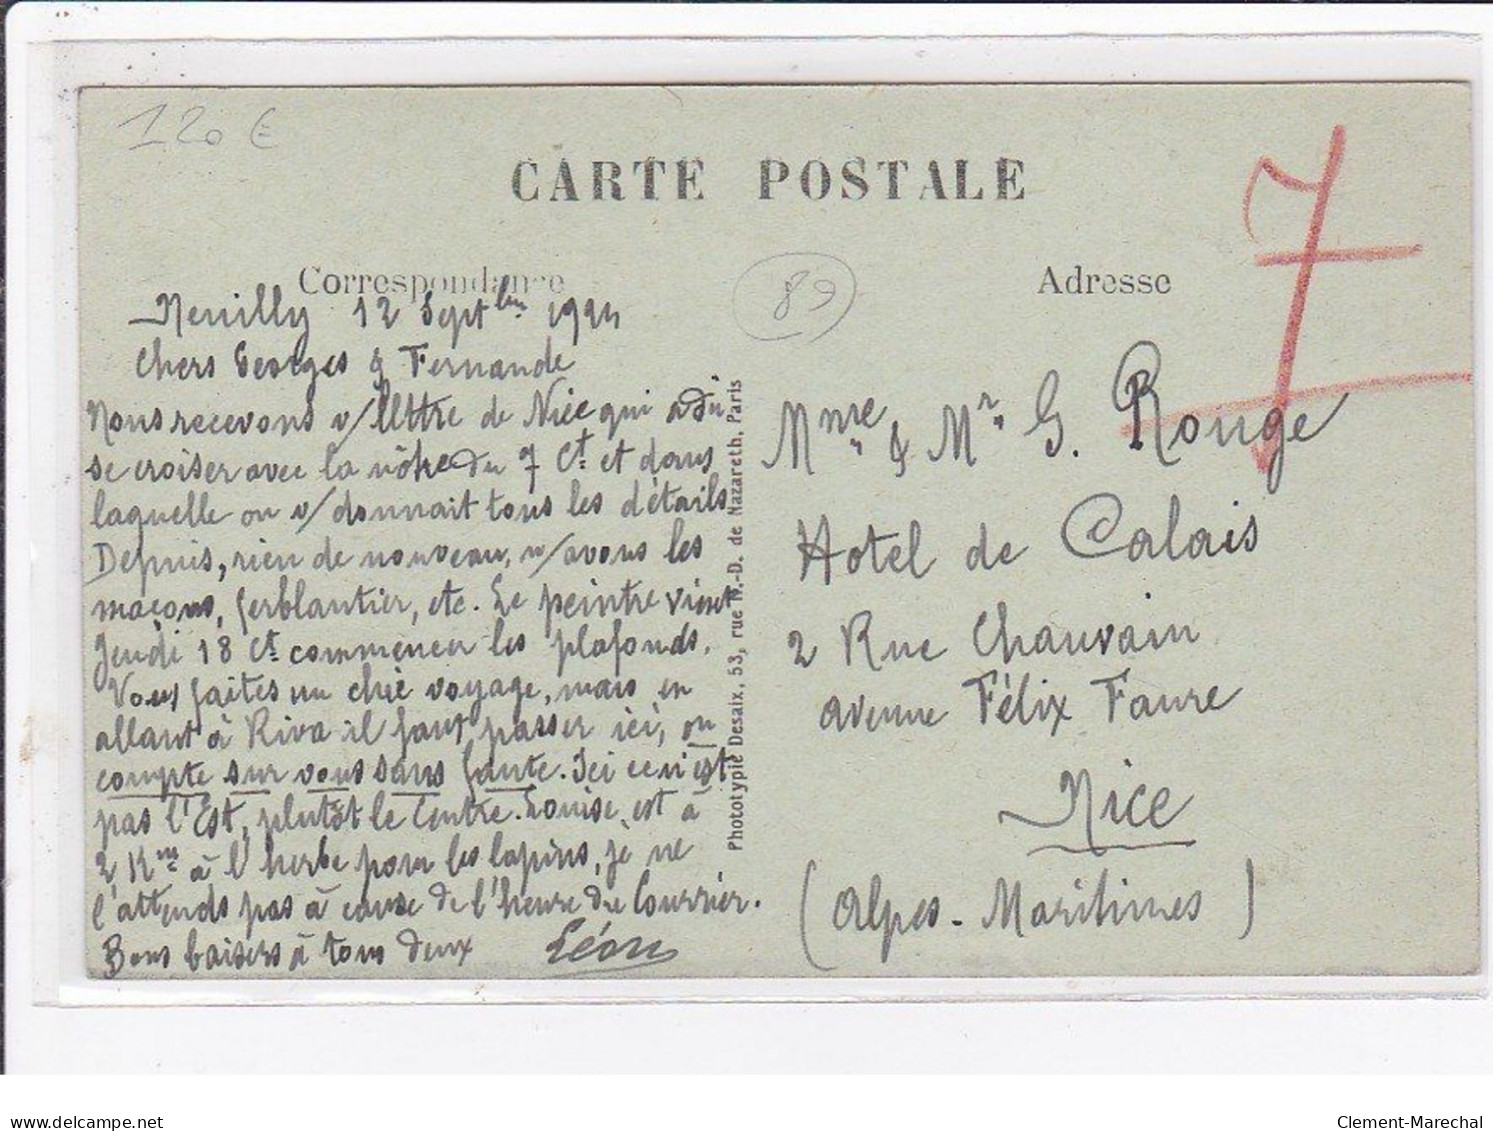 120€
CARTE POSTALE
Correspondance
89
Adresse
7
Neuilly 12 Septbre 1924
Chers Georges & Fernande
Nous recevons v/lettre de Nice qui a dû
se croiser avec la nôtre du 7 Ct et dans
laquelle on v/donnait tous les détails
Depuis, rien de nouveau, n/avons les
maçons, ferblantier, etc. Le peintre vient
Jeudi 18 Ct commencer les plafonds.
Vous faites un chic voyage, mais en
allant à Riva il faut passer ici, on
compte sur vous sans faute. Ici ce n'est
pas l'Est, plutôt le Centre. Louise est à
2 Km à l'herbe pour les lapins, je ne
l'attends pas à cause de l'heure du Courrier.
Bons baisers à tous deux Léon
Phototypie Desaix, 53, rue N.-D. de Nazareth, Paris
Mme & Mr G. Rouge
Hotel de Calais
2 Rue Chauvain
avenue Félix Faure
Nice
(Alpes-Maritimes)
delcampe.net
Clement-Marechal